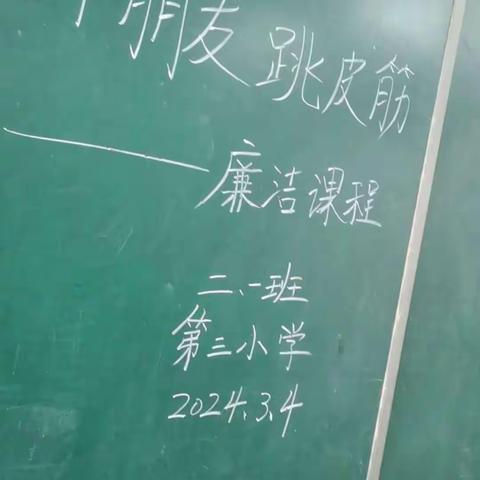 朋友跳皮筋
——廉洁课程
二、一班
第三小学
2024.3.4